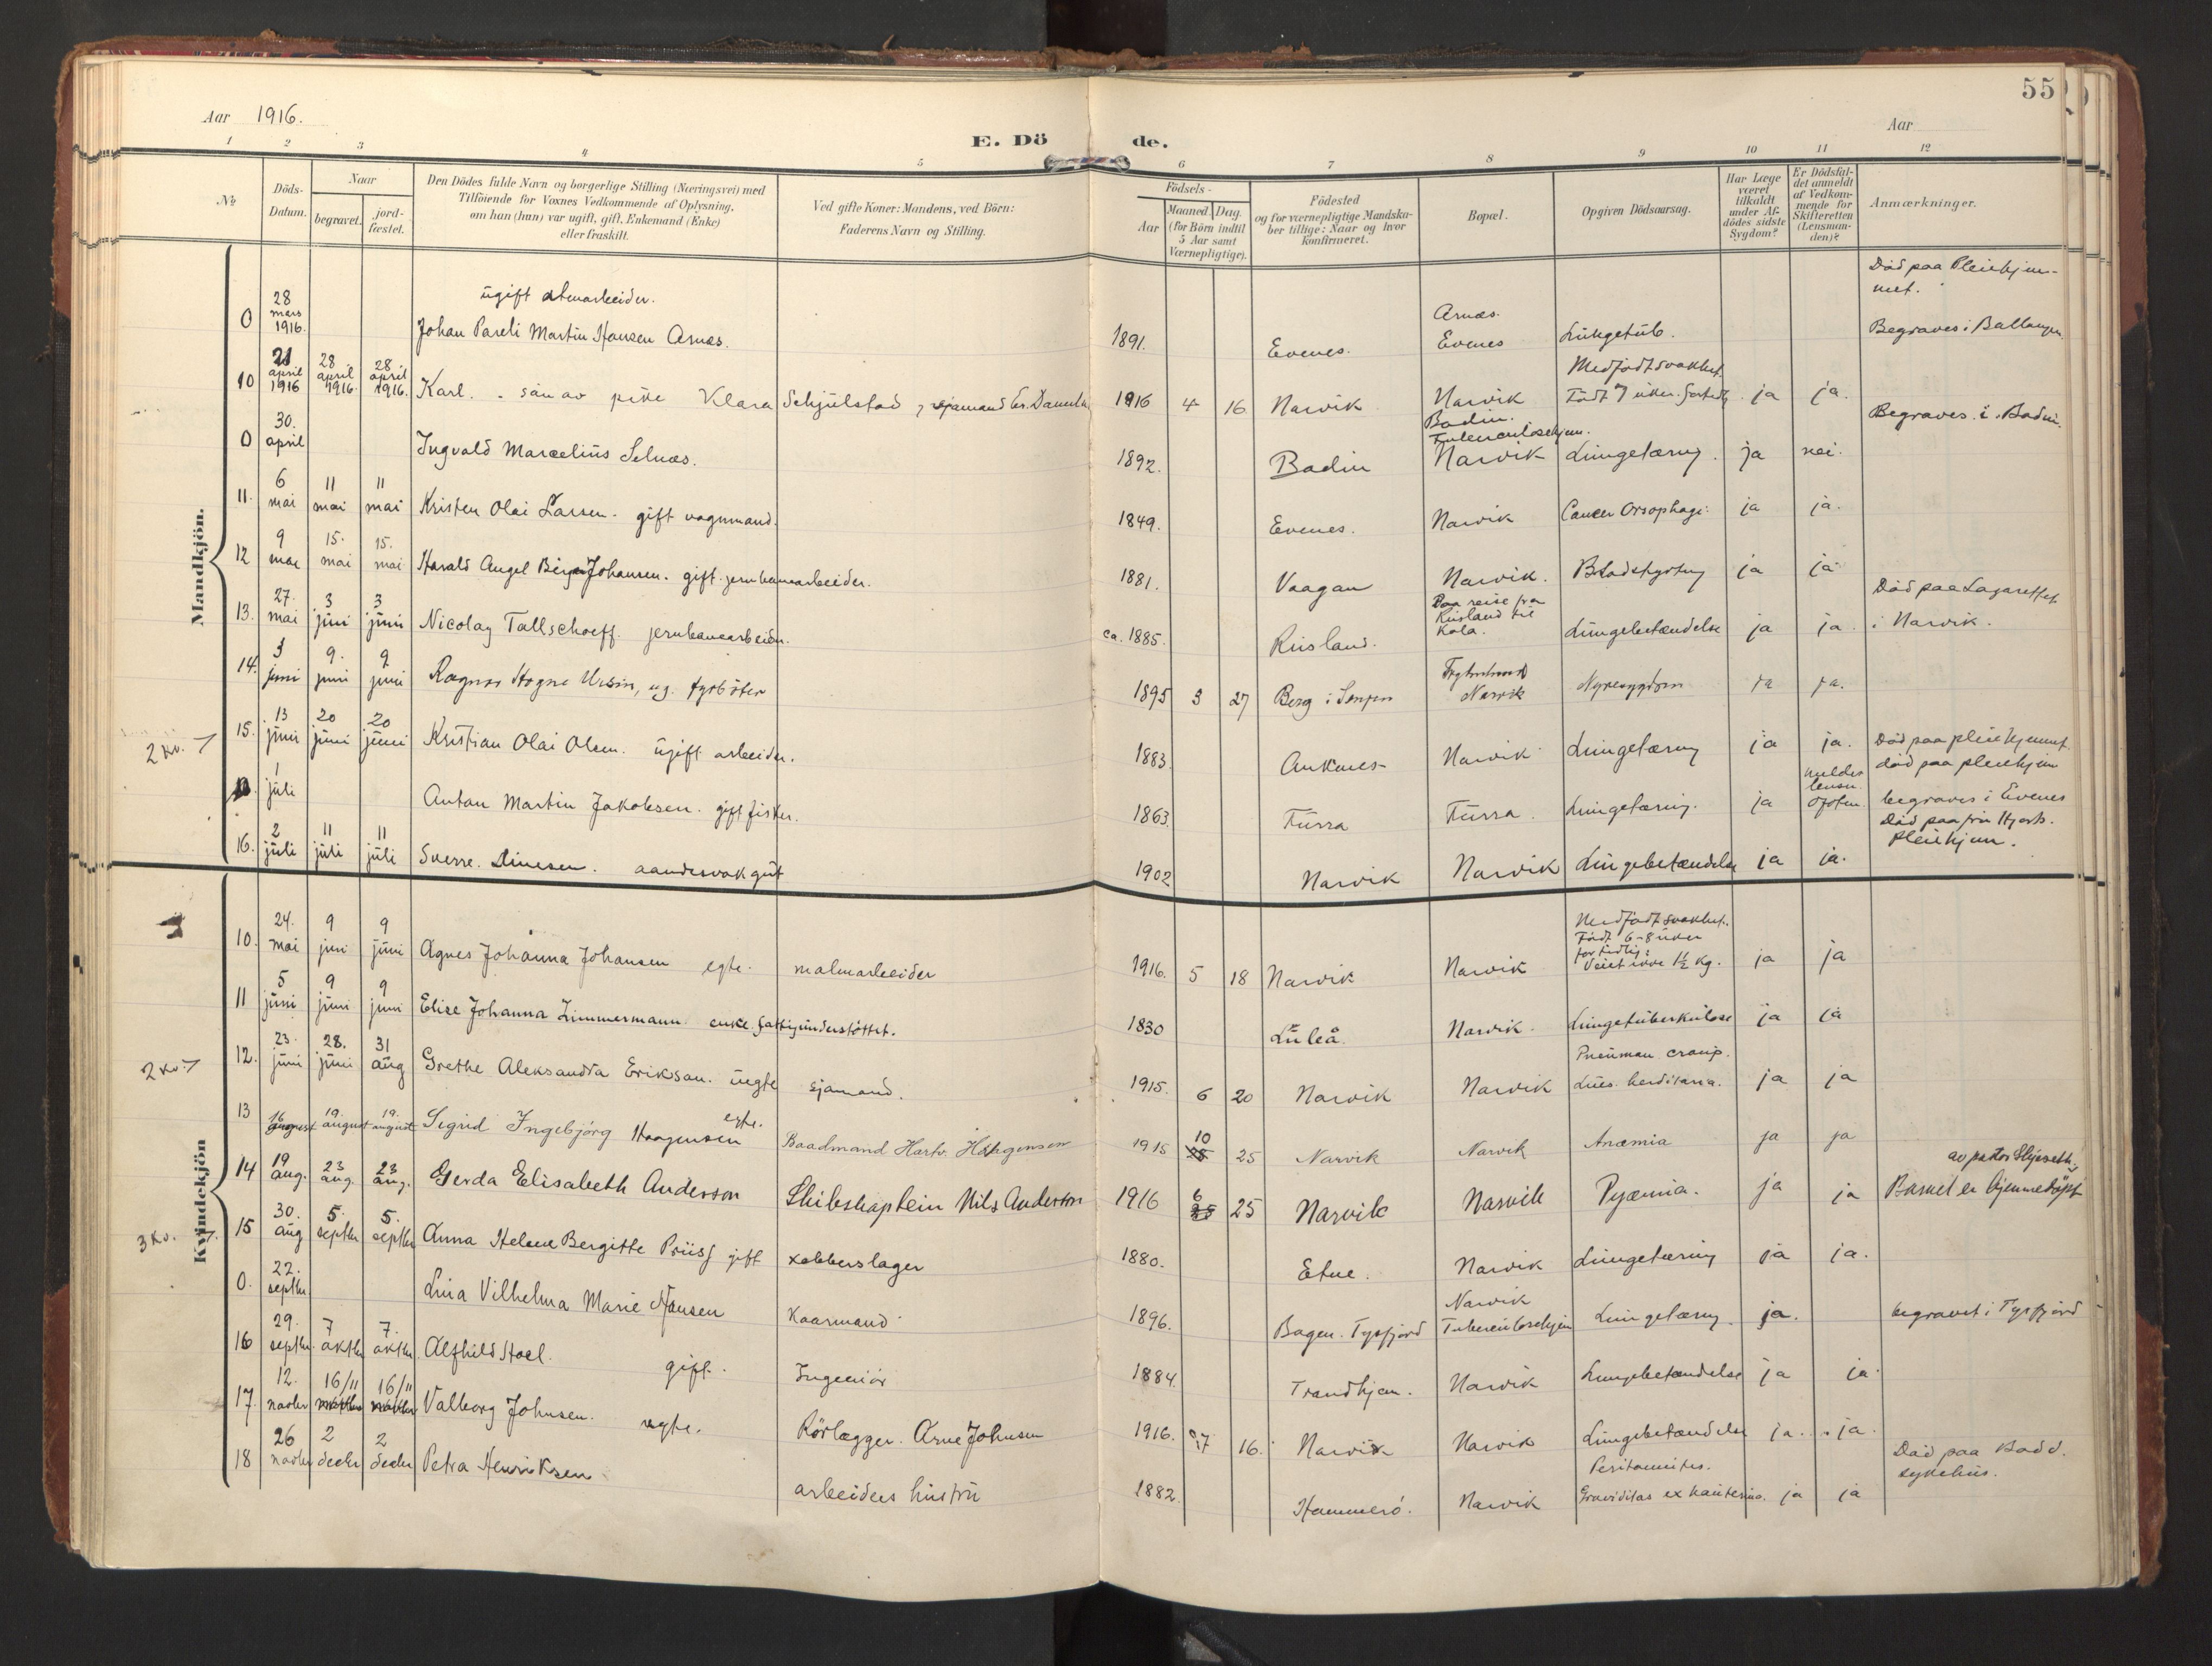 Aar 1916.
55
Aar
E. Dö de.
1 2 3 4 5 6 7 8 9 10 11 12
№
Döds-Datum.
Naar
begravet.
jord-fæstet.
Den Dödes fulde Navn og borgerlige Stilling (Næringsvei) med
Tilföiende for Voxnes Vedkommende af Oplysning,
om han (hun) var ugift, gift, Enkemand (Enke)
eller fraskilt.
Ved gifte Koner: Mandens, ved Börn:
Faderens Navn og Stilling.
Födsels-
Aar
Maaned. Dag.
(for Börn indtil
5 Aar samt
Værnepligtige).
Födested
og for værnepligtige Mandska-
ber tillige: Naar og hvor
konfirmeret.
Bopæl.
Opgiven Dödsaarsag.
Har Læge
været
tilkaldt
under Af-
dödes sidste
Sygdom?
Er Dödsfal-
det anmeldt
af Vedkom-
mende for
Skifteretten
(Lensman-
den)?
Anmærkninger.
Mandkjön.
0 28 mars 1916. ugift
Johan Pareli Martin Hansen Arnæs. 1891. Evenes. Arnæs. Evenes Lungetub. Död paa Pleiehjem-
met.
Begraves i Ballangen
10 21 april 1916 28 april 1916. 28 april 1916. Karl. sön av pike Klara Schjulstad 1916 4 16. Narvik Narvik Medfødt svakhet. Født 7 uker ja ja.
0 30. april Ingvald Marcelius Selnæs. 1892. Bodin Bodin. Tuberculosehjem. Narvik Lungetæring. ja nei. Begraves i Bodin.
11. 6 mai 11 mai 11 mai Kristen Olai Larsen. gift vognmand. 1849. Evenes. Narvik Cancer Oesophagi. ja ja.
12 9 mai 15. mai 15. mai Harald Angel Johansen. gift. jernbanearbeider. 1881. Vaagan Narvik. Blodstyrtng ja ja
13. 27. mai 3 juni 3 juni Nicolay Tallschoeff. jernbanearbeider. ca. 1885. Rusland. Paa reise fra Rusland til Kola. Lungebetændelse ja ja Död paa Lazarettet
i Narvik.
14. 3 juni 9. juni 9 juni Ragnar Hogne Ursin, ug. fyrböter 1895 3 27 Berg i Senjen Narvik Nyresygdom ja ja.
2 kv. 15. 13 juni 20 juni 20 juni Kristian Olai Olsen. ugift arbeider. 1883. Ankenes Narvik Lungetæring ja ja. Död paa pleiehjemmet.
0. 1 juli Anton Martin Jakobsen. gift fisker. 1863. Tusra Tusra. Lungetæring. ja meldes lensm. Ofoten. död paa pleiehjem
begraves i Evenes
16. 2 juli 11 juli 11 juli Sverre Dinesen. aandssvak gut 1902 Narvik Narvik Lungebetændelse ja ja. Död paa fru Hjorts
Pleiehjem.
Kvindekjön
10. 24. mai 9 juni 9 juni Agnes Johanna Johansen egte. malmarbeider 1916. 5 18 Narvik Narvik Medfødt svakhet. Født 6-8 uker for tidlig. Veiet ikke 1½ kg. ja ja
11 5 juni 9 juni 9 juni Elise Johanna Zimmermann enke. fattigunderstöttet. 1830 Luleå. Narvik. Lungetuberkulose ja ja
2 kv. 12. 23. juni 28. juni 31 aug Grethe Aleksandra Erikson. uegte sjömand. 1915. 6 20 Narvik Narvik Pneumon croup. Lues herditaria. ja ja
13 16 august 19. august 19. august Sigrid Ingebjörg Haagensen egte. Baadmand Hartv. Haagensen 1915 10 25 Narvik Narvik Anæmia ja ja
14 19 aug. 23 aug. 23 aug. Gerda Elisabeth Anderson Skibskaptein Nils Anderson 1916 6 25 Narvik Narvik Pyæmia. ja ja av pastor
Barnet er hjemmedöpt
3 kv. 15 30. aug 5. septbr 5. septbr Anna Helene Bergitte Priiss gift kobberslager 1880. Etne. Narvik Lungetæring ja ja.
0. 22. septbr Lina Vilhelma Marie Hansen Kaarmand 1896. Bogen. Tysfjord Narvik Tuberculosehjem Lungetæring. ja. begravet i Tysfjord
16 29. septbr. 7 oktbr 7. oktbr. Alfhild Stoel. gift. Ingeniör 1884. Trondhjem. Narvik Lungebetændelse ja ja.
17. 12. novbr 16/11 16/11 Valborg Johnsen. egte. Rörlægger. Arne Johnsen 1916. 7 16. Narvik Narvik Lungebetændelse ja. ja.
18 26 novbr 2 decbr 2 decbr Petra Henriksen arbeiders hustru 1882. Hammerö. Narvik Peritonitis. Graviditas ex ja ja Död paa Bodö.
sykehus.